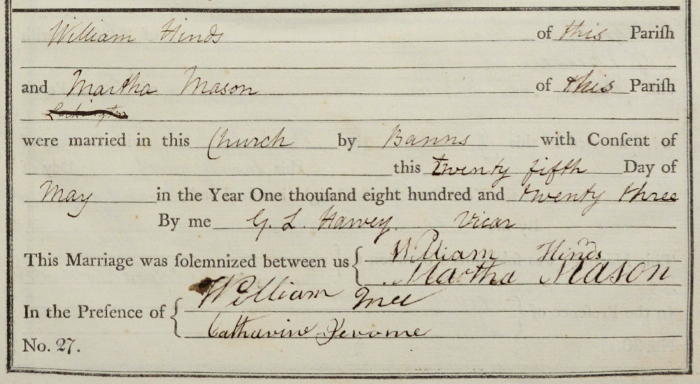 William Hinds of this Pariſh
and Martha Mason of this Pariſh
were married in this Church by Banns with Conſent of
this twenty fifth Day of
May in the Year One thouſand eight hundred and twenty three
By me G. L. Harvey Vicar
This Marriage was ſolemnized between us { William Hinds
Martha Mason
In the Preſence of { William Mee
Catharine Jerome
No. 27.